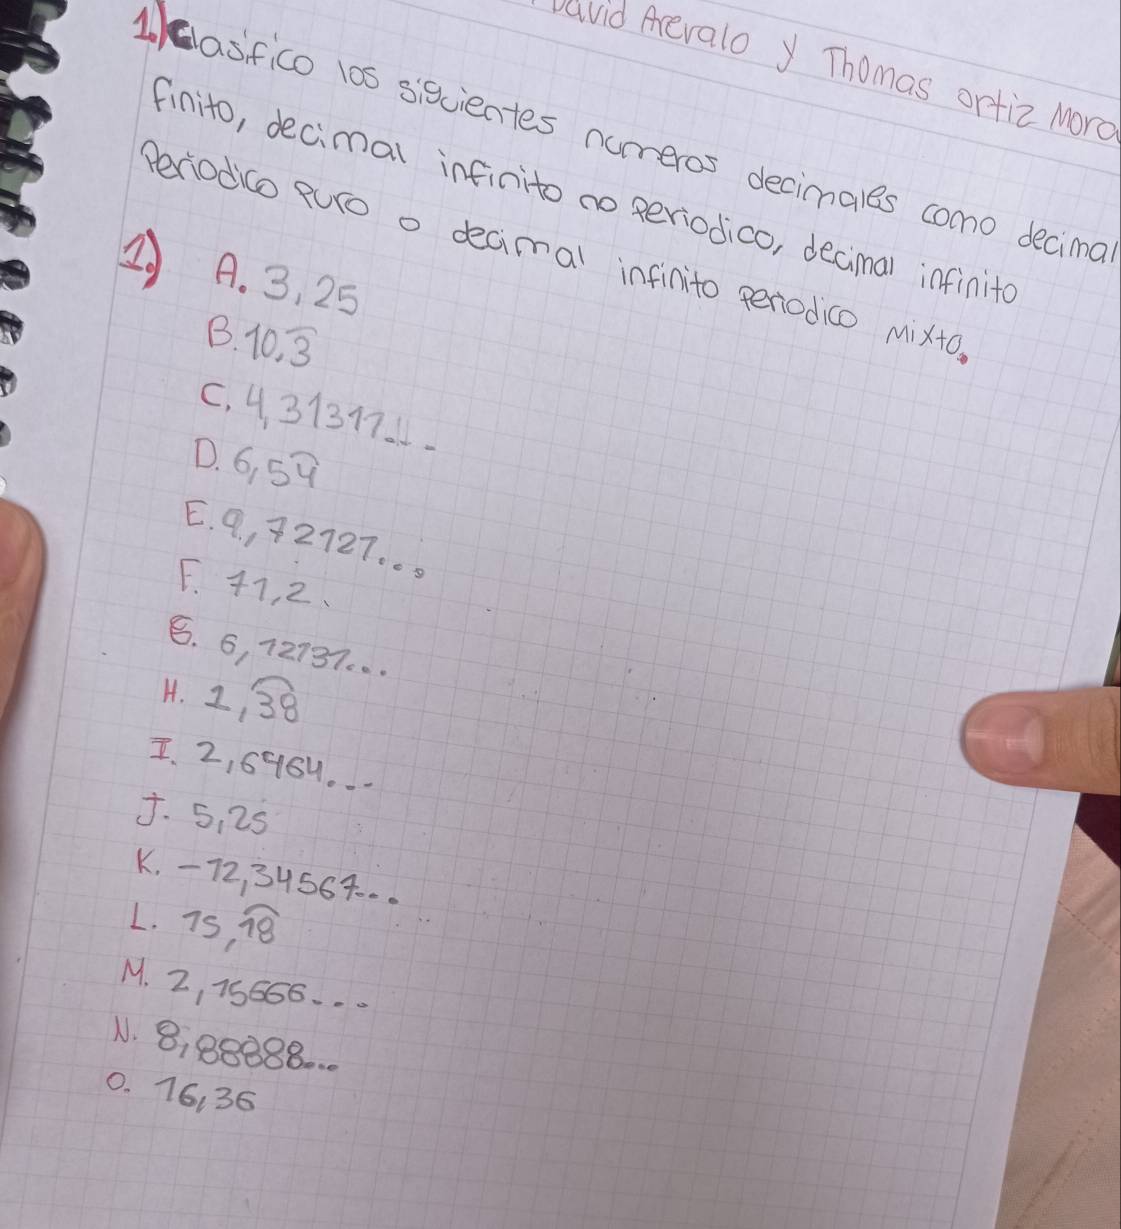 David Arevalo y Thomas ortiz Mora
1.) Clasifico los siguientes numeros decimales como decimal
finito, decimal infinito no periodico, decimal infinito
Periodico puro o decimal infinito periodico mixto.
1.) A. 3,25
B. 10,3̅
C. 4,31311...
D. 6,54̅
E. 9,72121...
F. 71,2
G. 6,12131...
H. 1,3̅8̅
I. 2,6464...
J. 5,25
K. -12,34567...
L. 15,1̅8̅
M. 2,15666...
N. 8,88888...
O. 16,36